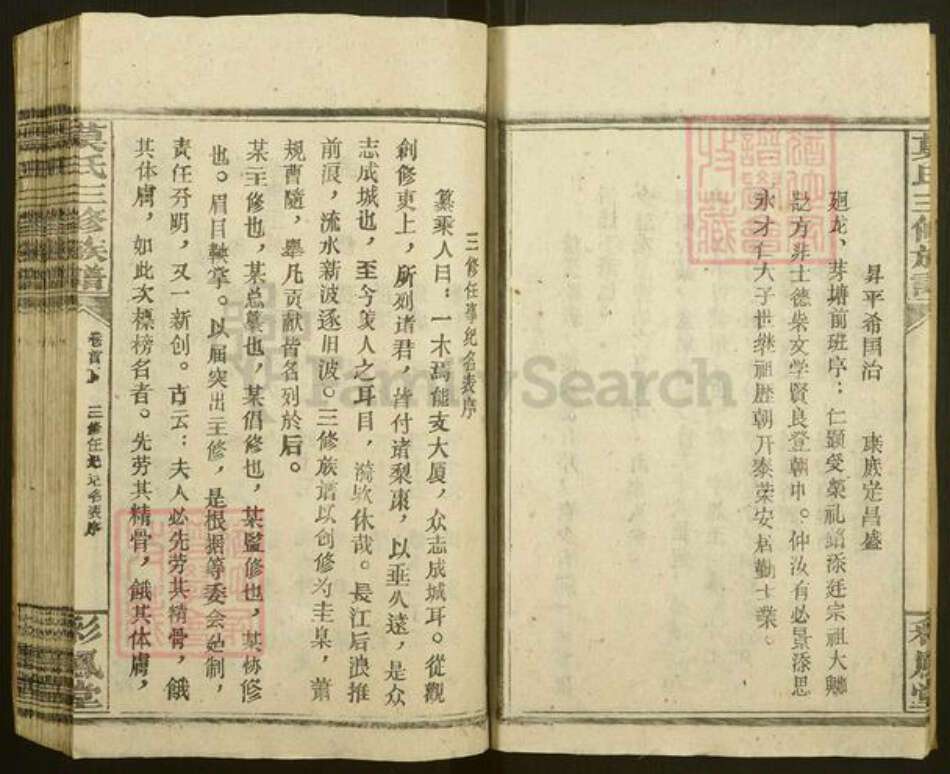 昇平希国治　東族定昌盛
廻龙、芽塘前班序：仁顕受荣礼 添廷宗祖大
方非士德柴文学賢良登朝中。仲汝有必景添思
永才仁大子世継祖歷朝开泰荣安居勤士業。
三修任事纪名表序
纂乘人曰：一木焉能支大厦，众志成城耳。從觀
創修吏上，所列诸君，皆付诸梨棗，以垂久遠，是众
志成城也，至今羙人之耳目，漪欤休哉。長江后浪推
前浪，流水新波逐旧波。三修族谱以创修为圭臬，萧
規曹隨，舉凡贡献皆名列於后。
某主修也，某总纂也，某倡修也，某監修也，某协修
也。眉目鞅掌。以届突出主修，是根据等委会 制，
责任分明，又一新创。古云：夫人必先劳其精骨，餓
其体膚，如此次標榜名者。先劳其精骨，餓其体膚，
莫氏三修族譜
卷首上
三修任 记名表序
彩鳳堂
FamilySearch